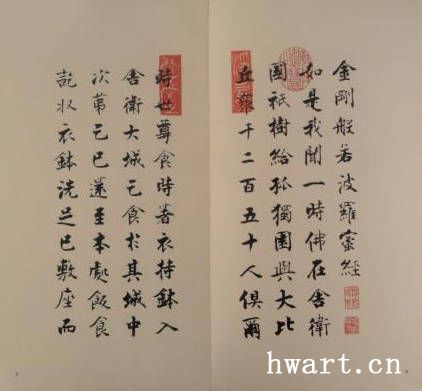 金剛般若波羅蜜經
如是我聞一時佛在舍衛
國祇樹給孤獨園與大比
丘眾千二百五十人俱爾
時世尊食時著衣持鉢入
舍衛大城乞食於其城中
次第乞已還至本處飯食
訖收衣鉢洗足已敷座而
hwart.cn